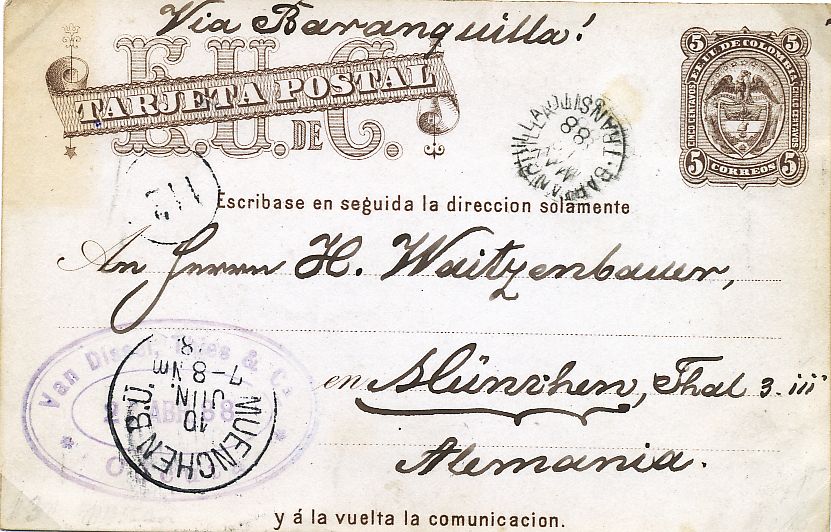 Via Baranquilla!
E.U. DE C.
TARJETA POSTAL
5 EE. UU. DE COLOMBIA 5
CINCO CENTAVOS CINCO CENTAVOS
5 CORREOS 5
BARRANQUILLA TRANSITO
88
112
Escribase en seguida la direccion solamente
An Herrn H. Waitzenbauer,
en München, Thal 3. iii
Alemania.
Van Dissel, Thies & Ca
2 ABR 88
MUENCHEN B.Ü.
10
JUN.
7-8 Nm
y á la vuelta la comunicacion.